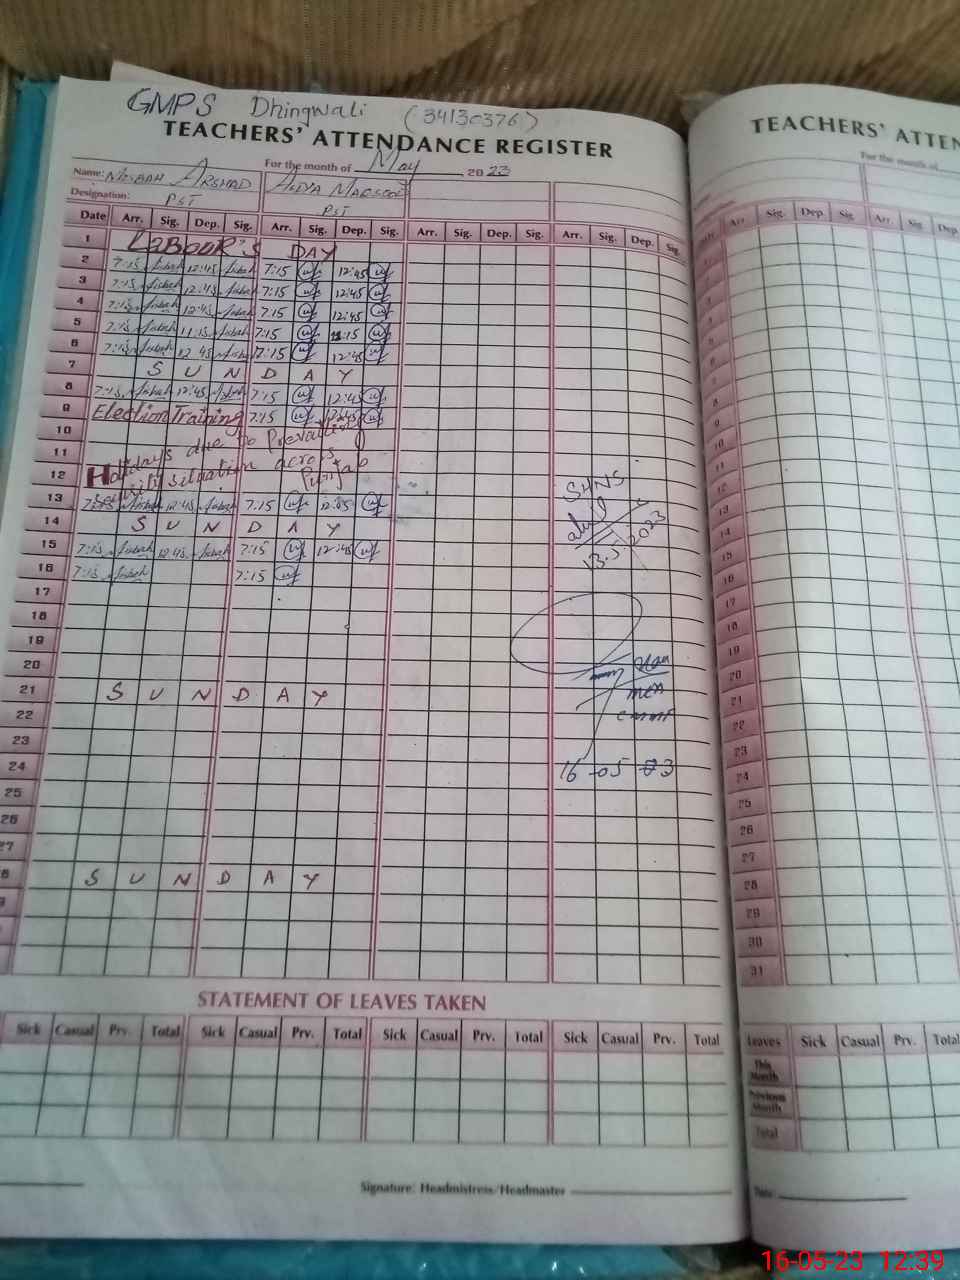 GMPS Dhingwali (34130376)
TEACHERS' ATTENDANCE REGISTER
For the month of May, 2023
Name: Misbah Arshad Aliya Maqsood
Designation: PST PST
Date Arr. Sig. Dep. Sig. Arr. Sig. Dep. Sig. Arr. Sig. Dep. Sig. Arr. Sig. Dep. Sig.
1 LABOUR'S DAY
2 7:15 Misbah 12:45 Misbah 7:15 12:45
3 7:15 Misbah 12:45 Misbah 7:15 12:45
4 7:15 Misbah 12:45 Misbah 7:15 12:45
5 7:15 Misbah 11:15 Misbah 7:15 11:15
6 7:15 Misbah 12:45 Misbah 7:15 12:45
7 SUNDAY
8 7:15 Misbah 12:45 Misbah 7:15 12:45
9 Election Training 7:15 12:45
10
11 Holidays due to Prevailing
12 security situation across Punjab
13 7:15 Misbah 12:45 Misbah 7:15 12:45
14 SUNDAY
15 7:15 Misbah 12:45 Misbah 7:15 12:45
16 7:15 Misbah 7:15
17
18
19
20
21 SUNDAY
22
23
24
25
26
27
8 SUNDAY
SHNS
13.5.2023
16-05-23
STATEMENT OF LEAVES TAKEN
Sick Casual Prv. Total Sick Casual Prv. Total Sick Casual Prv. Total Sick Casual Prv. Total
Signature: Headmistress/Headmaster
TEACHERS' ATTEN
For the month of
Arr. Sig. Dep. Sig. Arr. Sig. Dep.
8
9
10
11
12
13
14
15
16
17
18
19
20
21
22
23
24
25
26
27
28
29
30
31
Leaves Sick Casual Prv. Total Sick Casual
This Month
Previous Month
Total
Date:
16-05-23 12:39